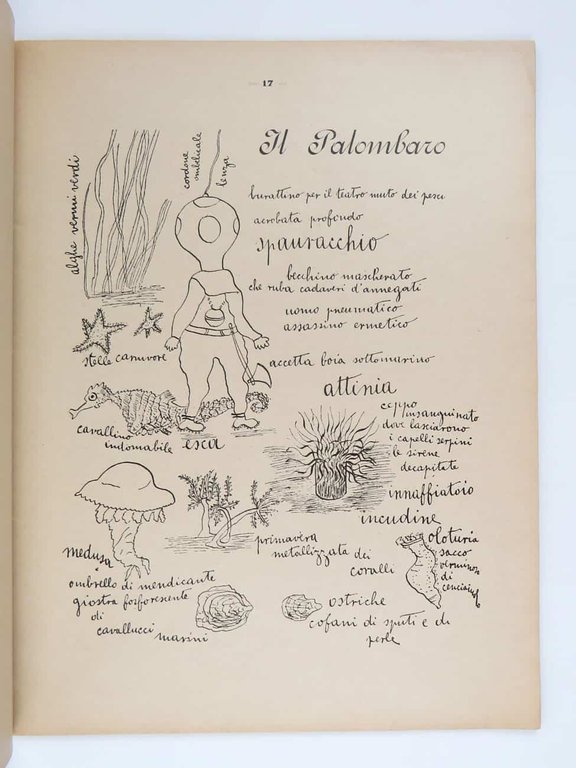 17
Il Palombaro
alghe vermi verdi
cordone
umbelicale
lenza
burattino per il teatro muto dei pesci
acrobata profondo
spauracchio
becchino mascherato
che ruba cadaveri d'annegati
uomo pneumatico
assassino ermetico
stelle carnivore
accetta boia sottomarino
cavallino
indomabile
esca
attinia
ceppo
insanguinato
dove lasciarono
i capelli serpini
le sirene
decapitate
innaffiatoio
incudine
primavera
metallizzata dei
coralli
oloturia
sacco
verminoso
di
medusa
ombrello di mendicante
giostra forforesente
di
cavallucci
marini
ostriche
cofani di sputi e di
perle